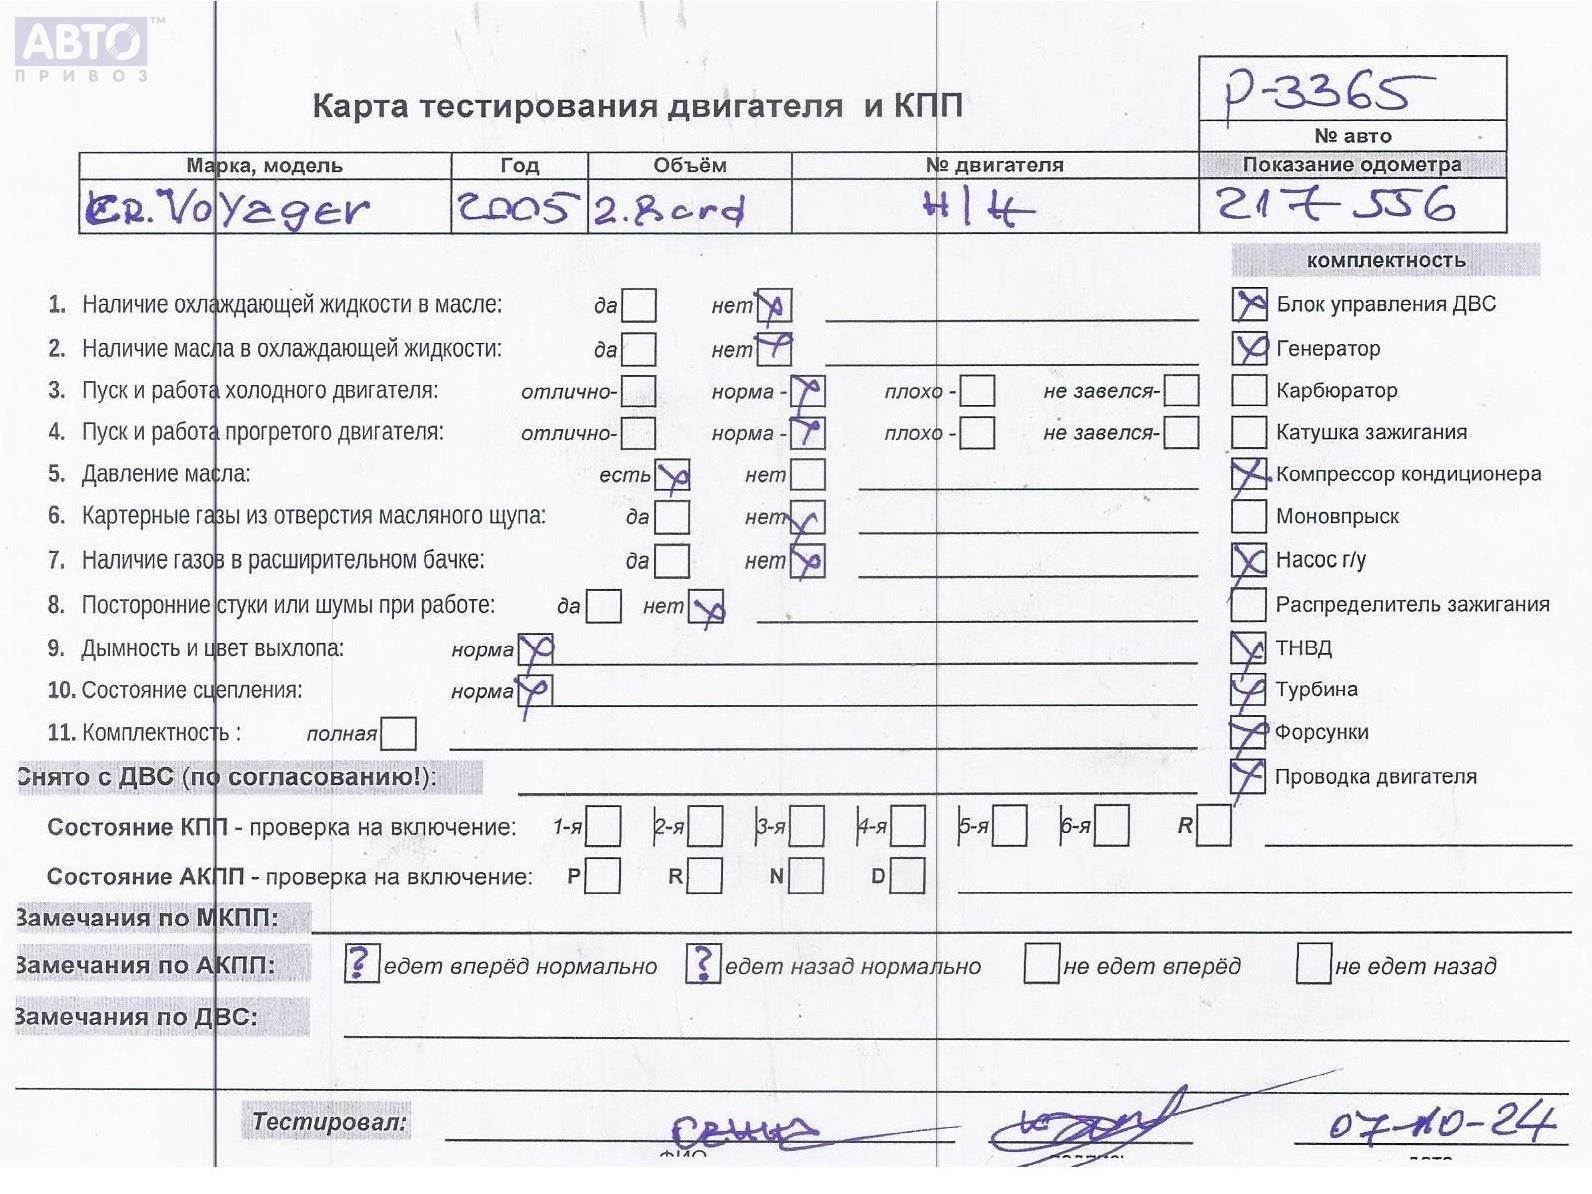 АВТО™
ПРИВОЗ
P-3365
Карта тестирования двигателя и КПП
№ авто
Марка, модель Год Объём № двигателя Показание одометра
CR. Voyager 2005 2.8crd Н/Н 217 556
комплектность
1. Наличие охлаждающей жидкости в масле: да нет Блок управления ДВС
2. Наличие масла в охлаждающей жидкости: да нет Генератор
3. Пуск и работа холодного двигателя: отлично- норма - плохо - не завелся- Карбюратор
4. Пуск и работа прогретого двигателя: отлично- норма - плохо - не завелся- Катушка зажигания
5. Давление масла: есть нет Компрессор кондиционера
6. Картерные газы из отверстия масляного щупа: да нет Моновпрыск
7. Наличие газов в расширительном бачке: да нет Насос г/у
8. Посторонние стуки или шумы при работе: да нет Распределитель зажигания
9. Дымность и цвет выхлопа: норма ТНВД
10. Состояние сцепления: норма Турбина
11. Комплектность : полная Форсунки
Снято с ДВС (по согласованию!): Проводка двигателя
Состояние КПП - проверка на включение: 1-я 2-я 3-я 4-я 5-я 6-я R
Состояние АКПП - проверка на включение: P R N D
Замечания по МКПП:
Замечания по АКПП: ? едет вперёд нормально ? едет назад нормально не едет вперёд не едет назад
Замечания по ДВС:
Тестировал: 07-10-24
ФИО подпись дата